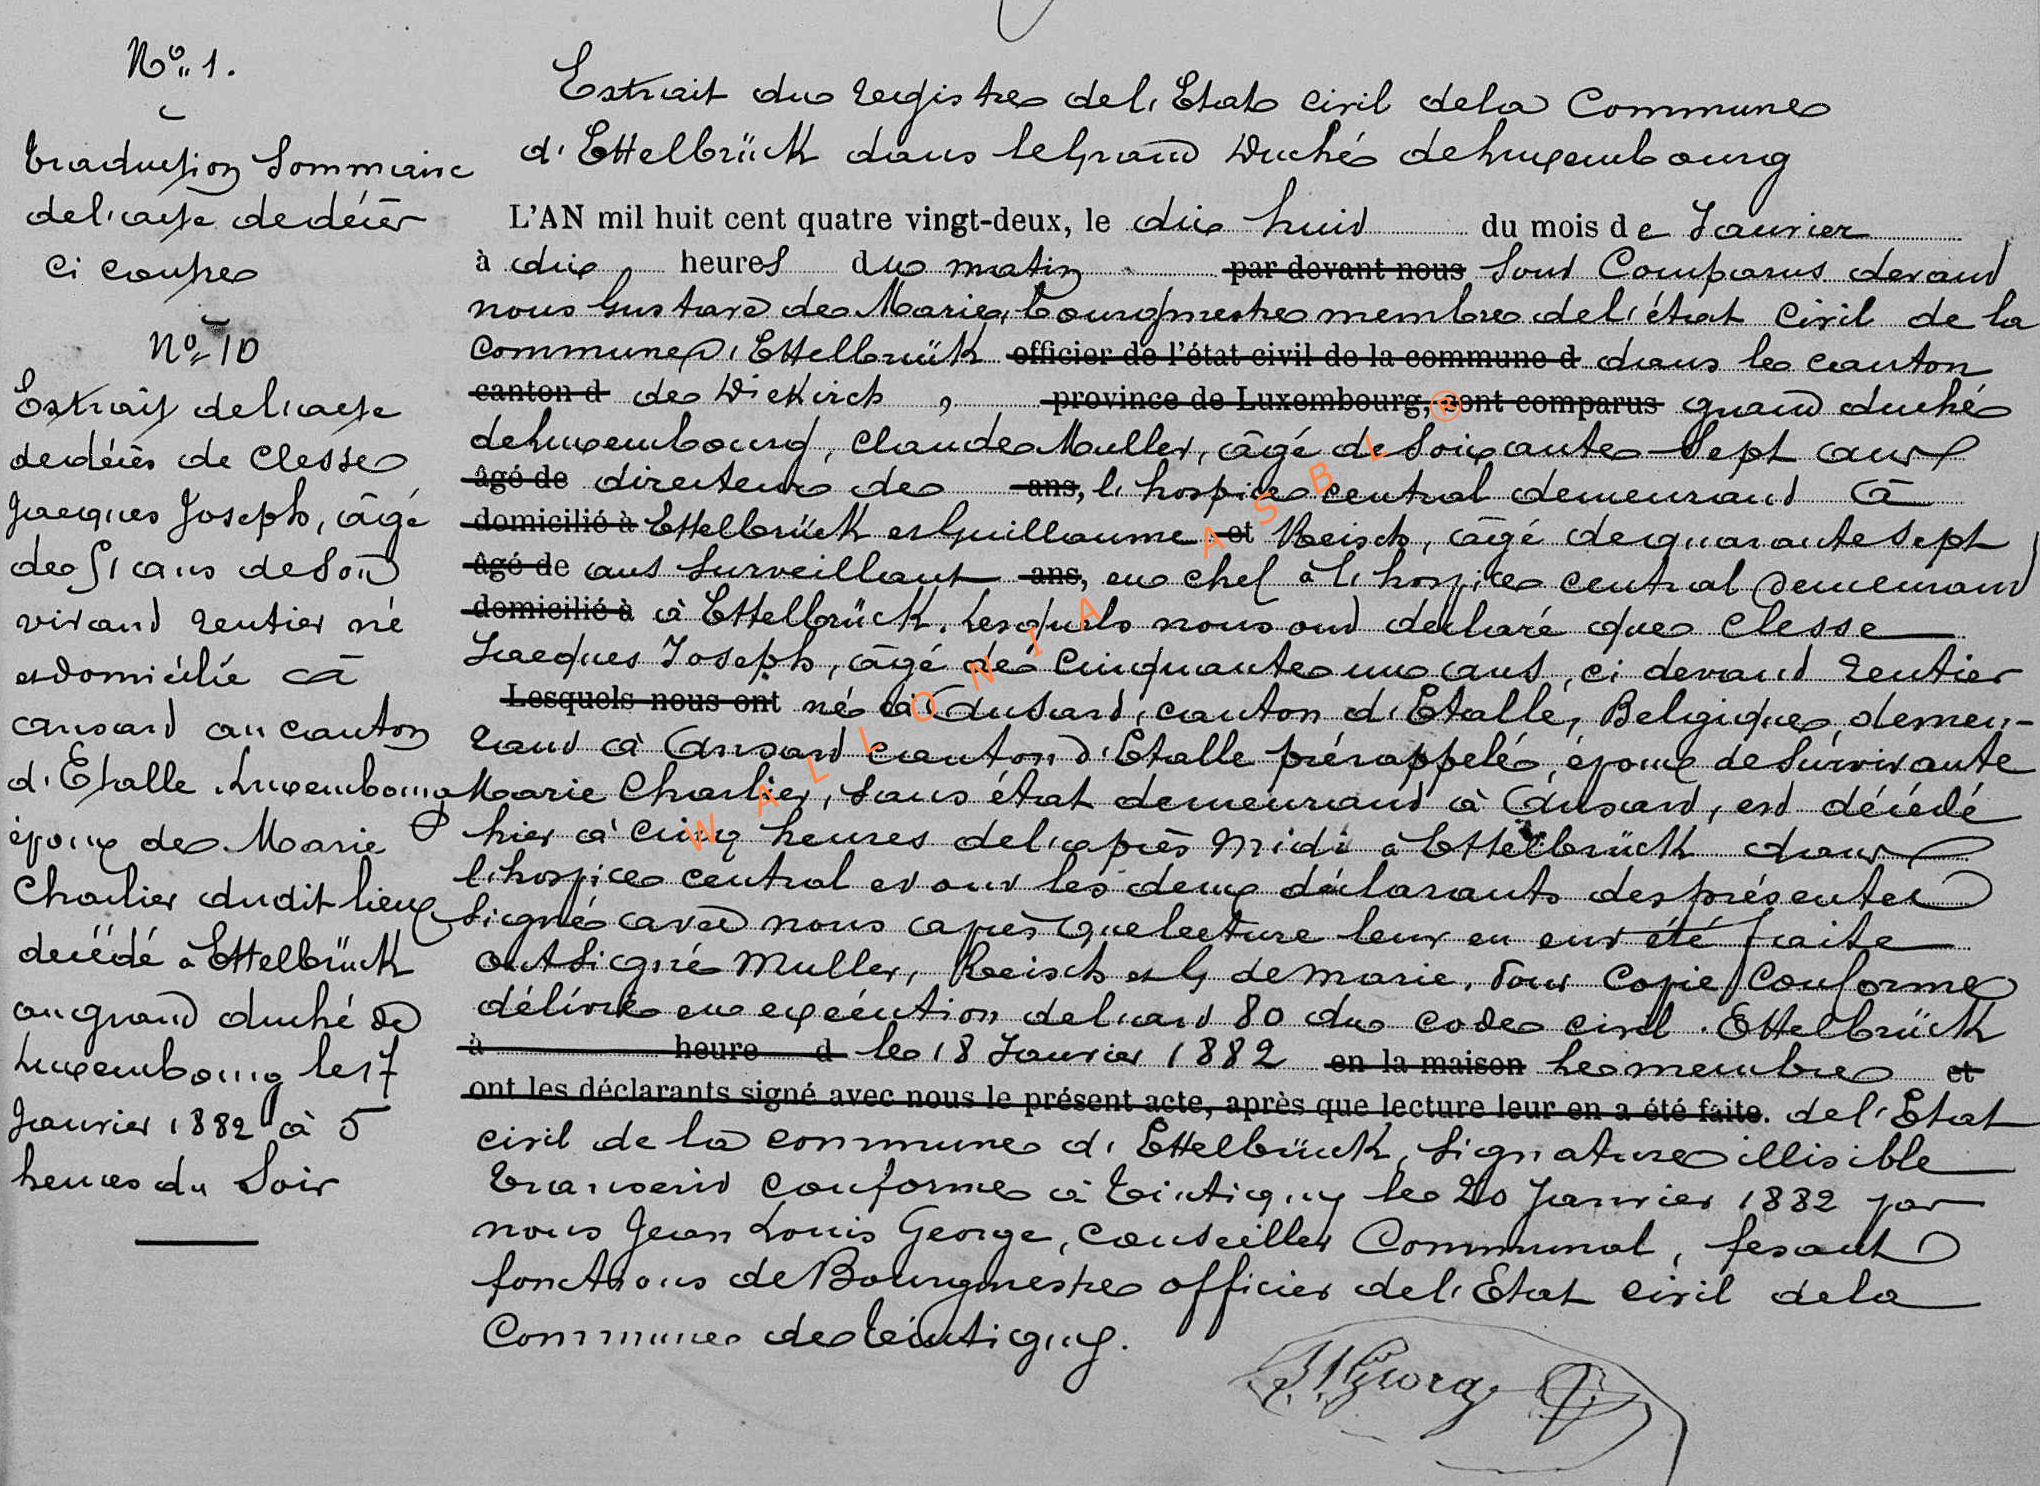 No 1.
Traduction Sommaire
de l'acte de décer
ci contre
No 10
Extrait de l'acte
de décès de Clesse
Jacques Joseph, âgé
de 51 ans de son
vivand rentier né
et domicilié à
ansard au canton
d'Etalle Luxembourg
époux de Marie
Charlier dudit lieu
décédé à Ettelbrück
au grand duché de
Luxembourg le 17
Janvier 1882 à 5
heures du Soir
Extrait du registre de l'Etat civil de la Commune
d'Ettelbrück dans le Grand Duché de Luxembourg
L'AN mil huit cent quatre vingt-deux, le dix huid du mois de Janvier
à dix heures du matin par devant nous Sont Comparus devand
nous Gustave de Marie, bourgmestre membre de l'état Civil de la
Commune d'Ettelbrück officier de l'état civil de la commune d dans le canton
canton d de Diekirch, province de Luxembourg, sont comparus grand duché
de Luxembourg, Claude Muller, âgé de Soixante Sept ans
âgé de directeur de ans, l'hospice central demeurand à
domicilié à Ettelbrück et Guillaume et Reisch, âgé de quarante sept
âgé de ans Surveillant ans, en chef à l'hospice central demeurand
domicilié à à Ettelbrück. Lesquels nous ont declaré que Clesse
Jacques Joseph, âgé de Cinquante un ans, ci devand rentier
Lesquels nous ont né à Ansard, canton d'Etalle, Belgique, demeu-
rand à Ansard canton d'Etalle prérappelé, époux de Survivante
Marie Charlier, Sans état demeurand à Ansard, est décédé
hier à cinq heures de l'après Midi à Ettelbrück dans
l'hospice central et ont les deux déclarants des présentes
Signé avec nous après que lecture leur en eut été faite
Ont Signé Muller, Reisch et G de Marie. Pour Copie Conforme
délivré en exécution de l'art 80 du code civil. Ettelbrück
à heure d le 18 Janvier 1882 en la maison Le membre et
ont les déclarants signé avec nous le présent acte, après que lecture leur en a été faite. de l'Etat
civil de la commune d'Ettelbrück, Signature illisible
Transcrit conforme à Tintigny le 20 Janvier 1882 par
nous Jean Louis George, Conseiller Communal, fesant
fonctions de Bourgmestre officier de l'Etat civil de la
Commune de Tintigny.
JLGeorge
WALLONIA ASBL ®